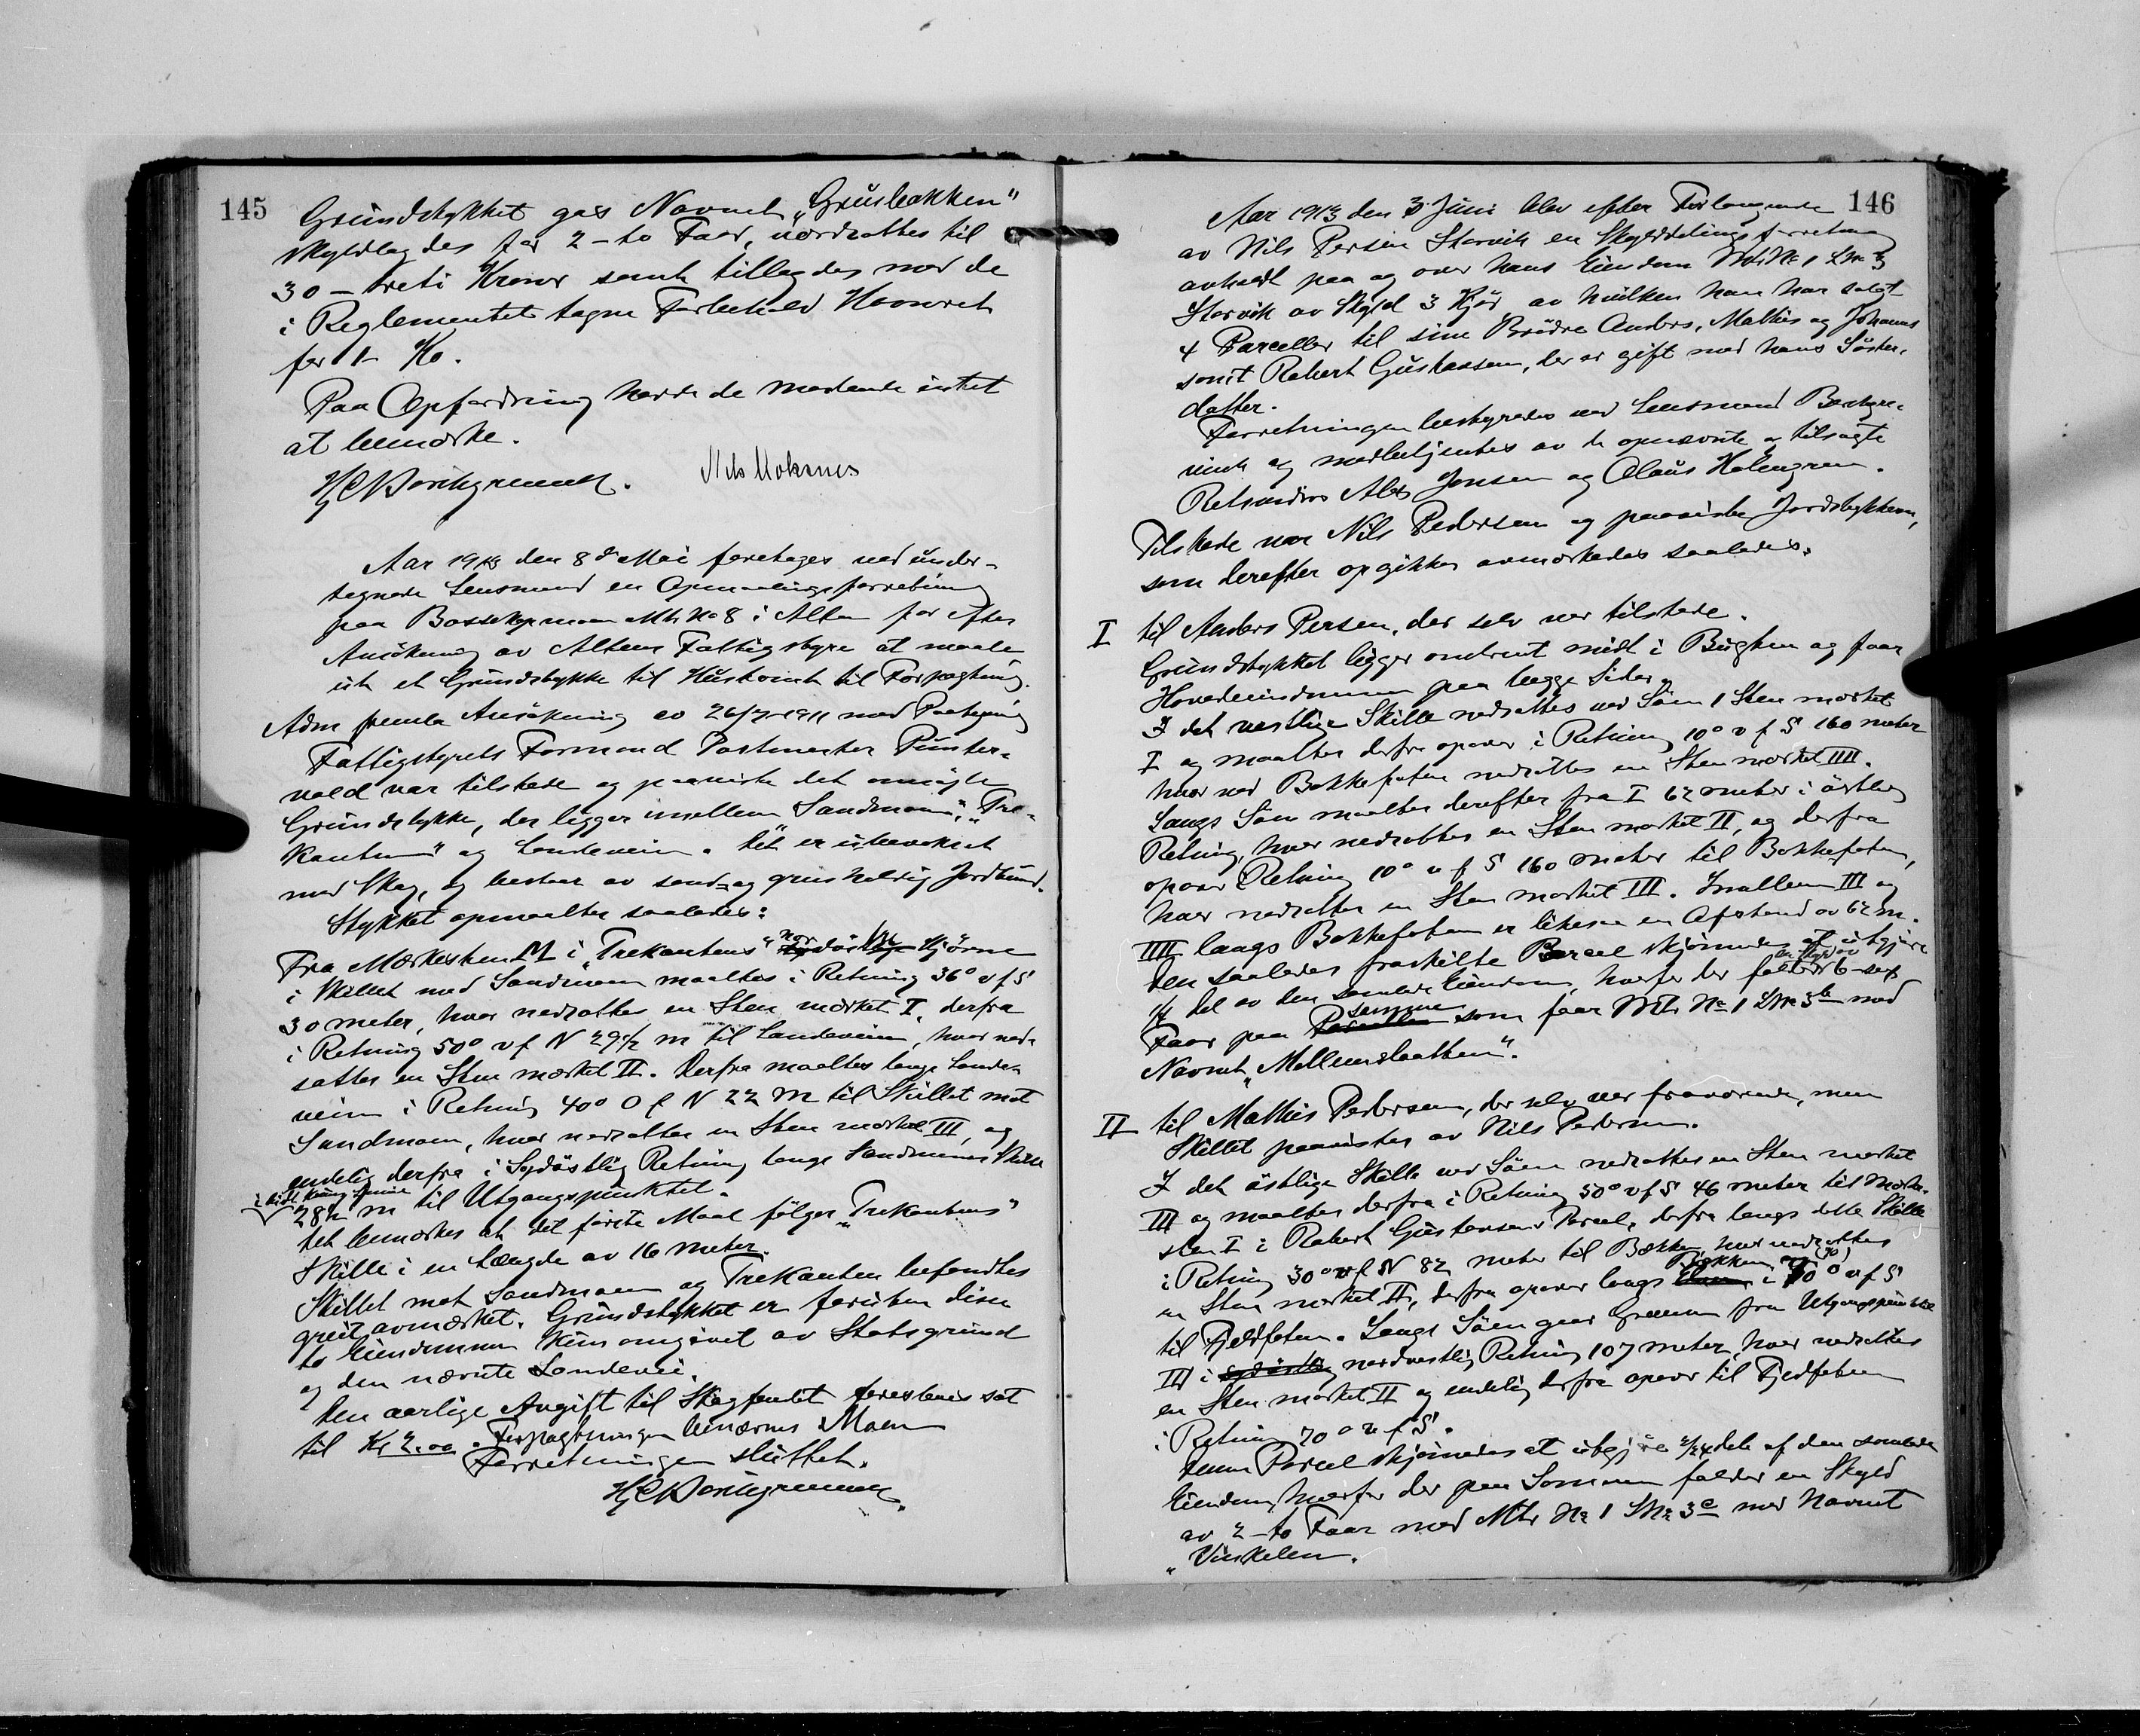 145
Grundstykket gis Navnet „Grusbakken"
skyldlagdes for 2 - to Faar, værdsattes til
30 - treti Kroner samt tillagdes med de
i Reglementet tagne Forbehold Havneret
for 1 - Ko.
Paa Opfordring hadde de mødende intet
at bemærke.
Nils Mokanes
Aar 1913 den 8de Mai foretoges ved under-
tegnede Lensmand en Opmaalingsforretning
paa Bossekopmoen Mtr No 8 i Alten for efter
Ansökning av Altens Fattigstyre at maale
ut et Grundstykke til Hustomt til Forpagtning.
Ansökning av 26/7-1911 med Paategning
Fattigstyrets Formand Postmester Punter-
vold var tilstede og paaviste det omsögte
Grundstykke, der ligger imellem Sandmoen, „Tre-
kanten" og Landeveien. Det er ubevokset
med Skog, og bestaar av sand- og grusholdig Jordbund.
Stykket opmaaltes saaledes:
Fra Merkesten M i „Trekantens" nordöstlige Hjörne
i Skillet med Sandmoen maaltes i Retning 36° v f S
30 meter, hvor nedsattes en Sten mærket I, derfra
i Retning 50° v f N 29 1/2 m til Landeveien, hvor ned-
sattes en Sten mærket II. Derfra maaltes langs Lande-
veien i Retning 40° O f N 22 m til Skillet mot
Sandmoen, hvor nedsattes en Sten mærket III, og
endelig derfra i Sydöstlig Retning langs Sandmoens Skille
28 1/2 m til Utgangspunktet.
Det bemerkes at det förste Maal fölger „Trekantens"
Skille i en Længde av 16 meter.
Skillet mot Sandmoen og Trekanten befandtes
greit avmærket. Grundstykket er foruten disse
to Eiendommer kun omgivet av Statsgrund
og den nævnte Landevei.
Den aarlige Avgift til Skogfondet foreslaaes sat
til Kr 2.00. Forpagtningen benævnes Moen
Forretningen sluttet.
146
Aar 1913 den 3 Juni blev efter Forlangende
av Nils Persen Storvik en Skylddelingsforretning
avholdt paa og over hans Eiendom Mtr No 1 LNo 3
Storvik av Skyld 3 Kjör av hvilken han har solgt
4 Parceller til sine Brödre Anders, Mathis og Johannes
samt Robert Gustavsen, der er gift med hans Söster-
datter.
Forretningen bestyredes ved Lensmand Bordgre-
vink og medbetjentes av de opnævnte og tilsagte
Retsvidner Alex Jensen og Olaus Holmgren.
Tilstede var Nils Pedersen og paaviste Jordstykkerne,
som derefter opgikkes avmerkedes saaledes.
I til Anders Persen, der selv var tilstede.
Grundstykket ligger omtrent midt i Bugten og faar
Hovedeiendommen paa begge Sider.
I det vestlige Skille nedsattes ved Söen 1 Sten mærket
I og maaltes derfra opover i Retning 10° v f S 160 meter
hvor ved Bakkefoten nedsattes en Sten mærket IIII.
Langs Söen maaltes derefter fra I 62 meter i östlig
Retning, hvor nedsattes en Sten mærket II, og derfra
opover Retning 10° v f S 160 meter til Bakkefoten,
hvor nedsattes en Sten mærket III. Imellem III og
IIII langs Bakkefoten er likesaa en Afstand av 62 m.
Den saaledes fraskilte Parcel skjönnedes at utgjöre
1/4 del av den samlede Eiendom, hvorfor der falder en Skyld av 6 - seks
Faar paa samme som faar Mtr No 1 LNo 3b med
Navnet „Mellemslaatten".
II til Mathis Pedersen, der selv var fraværende, men
Skillet paavistes av Nils Pedersen.
I det östlige Skille ved Söen nedsattes en Sten mærket
III og maaltes derfra i Retning 50° v f S 46 meter til Merke-
sten I i Robert Gustavsens Parcel, derfra langs dette Skille
i Retning 30° v f N 82 meter til Bækken, hvor nedsattes
en Sten mærket II, derfra opover langs Bækken i 70° v f S
til Fjeldfoten. Langs Söen gaar Grænsen fra Utgangspunktet
III i sydöstlig nordvestlig Retning 107 meter, hvor nedsattes
en Sten mærket II og endelig derfra opover til Fjeldfoten
i Retning 70° v f S.
Denne Parcel skjönnedes at utgjöre 2/24 dele af den samlede
Eiendom, hvorfor der paa Sammen falder en Skyld
av 2 - to Faar med Mtr No 1 LNo 3c med Navnet
„Vinkelen.